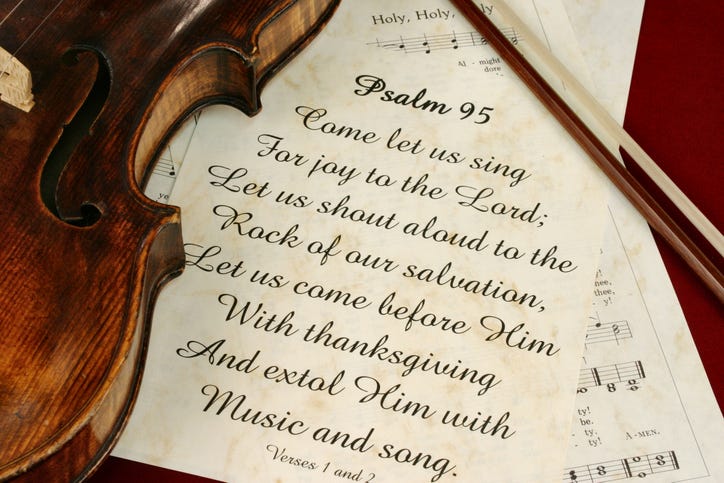 Holy, Holy, Holy
Al - might
dore
Psalm 95
Come let us sing
For joy to the Lord;
Let us shout aloud to the
Rock of our salvation,
Let us come before Him
With thanksgiving
And extol Him with
Music and song.
Verses 1 and 2
ye
nee,
thee,
- y!
ty!
be.
ty.
ty!
A-MEN.